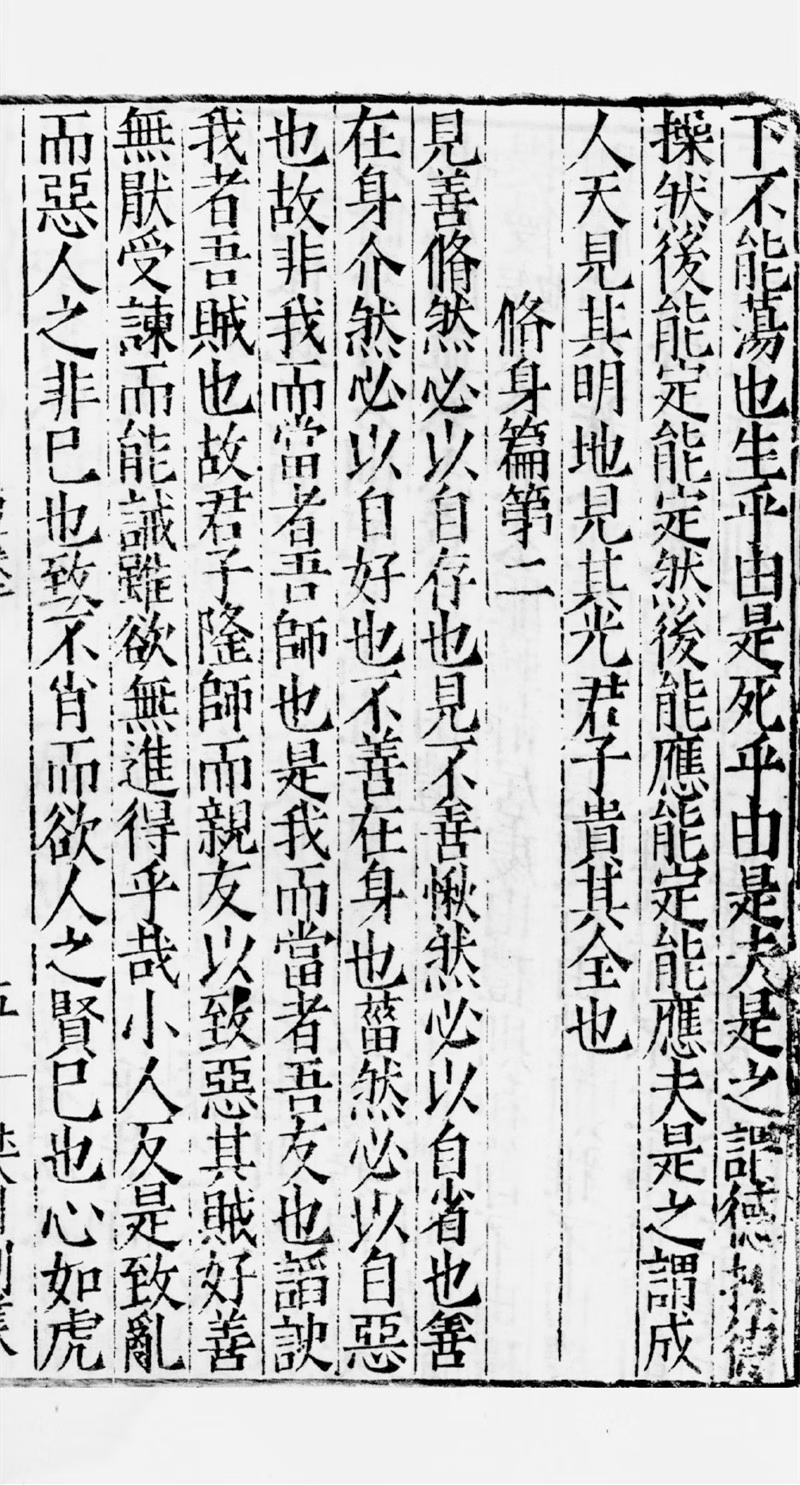 下不能蕩也生乎由是死乎由是夫是之謂德操
操然後能定能定然後能應能定能應夫是之謂成
人天見其明地見其光君子貴其全也
脩身篇第二
見善脩然必以自存也見不善愀然必以自省也善
在身介然必以自好也不善在身也菑然必以自惡
也故非我而當者吾師也是我而當者吾友也諂諛
我者吾賊也故君子隆師而親友以致惡其賊好善
無猒受諫而能誡雖欲無進得乎哉小人反是致亂
而惡人之非巳也致不肖而欲人之賢巳也心如虎